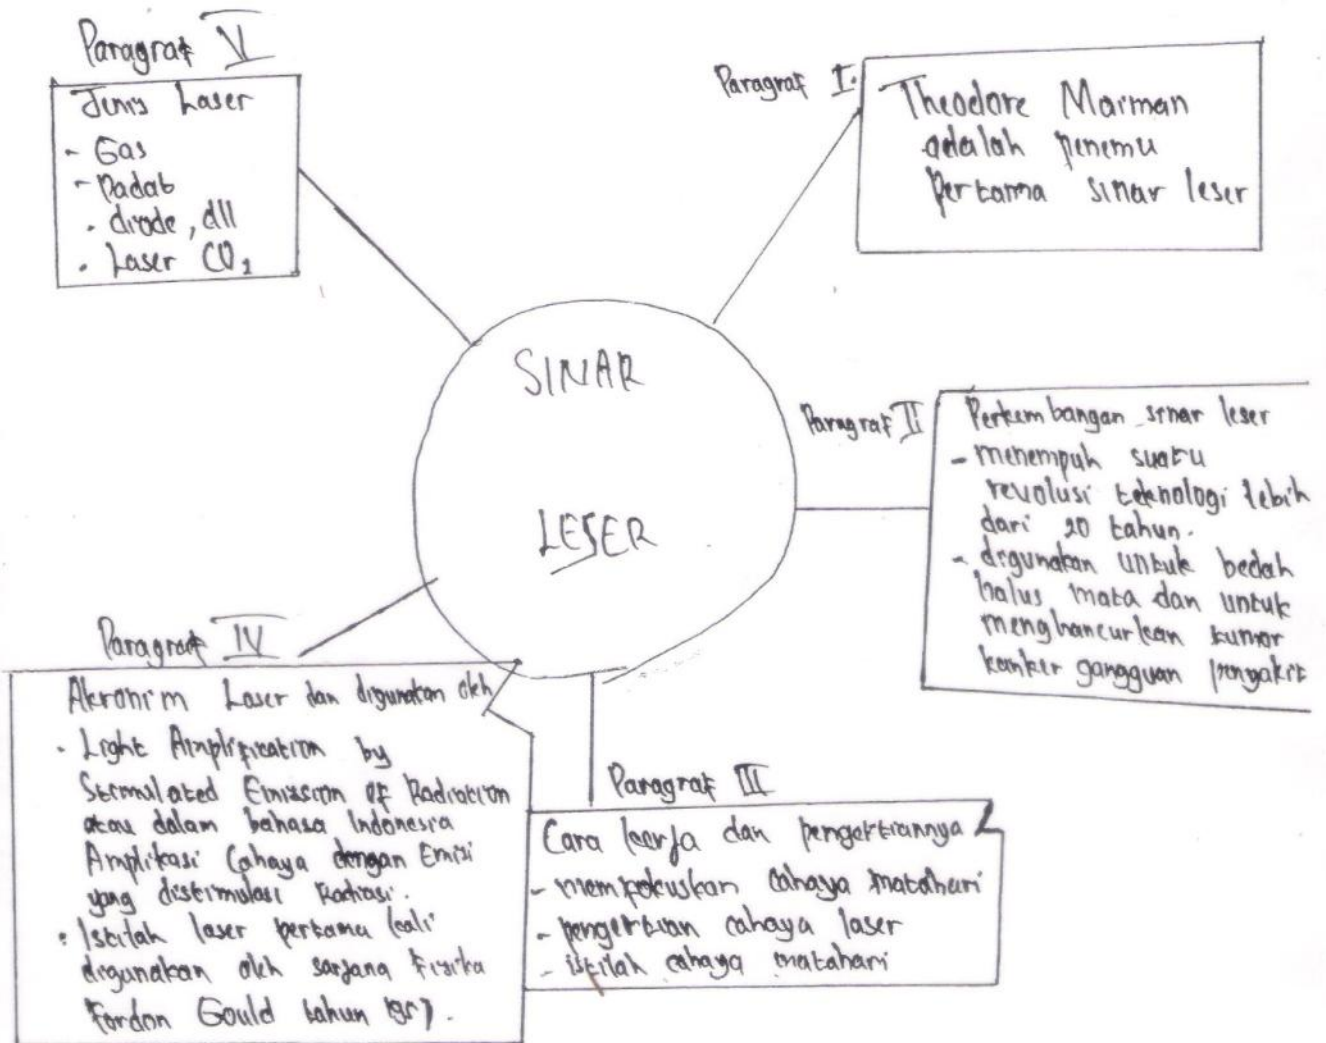 Paragraf V
Jenis Laser
- Gas
- Padat
. diode, dll
. Laser CO2
Paragraf I.
Theodore Maiman
adalah penemu
pertama sinar leser
SINAR
LESER
Paragraf II
Perkembangan sinar leser
- menempuh suatu
revolusi teknologi lebih
dari 20 tahun.
- digunakan untuk bedah
halus mata dan untuk
menghancurkan tumor
kanker gangguan penyakit
Paragraf III
Cara kerja dan pengertiannya
- memfokuskan cahaya matahari
- pengertian cahaya laser
- istilah cahaya matahari
Paragraf IV
Akronim Laser dan digunakan oleh
. Light Amplification by
Stimulated Emission of Radiation
atau dalam bahasa Indonesia
Amplikasi Cahaya dengan Emisi
yang distimulasi Radiasi.
. Istilah laser pertama kali
digunakan oleh sarjana Fisika
Fordon Gould tahun